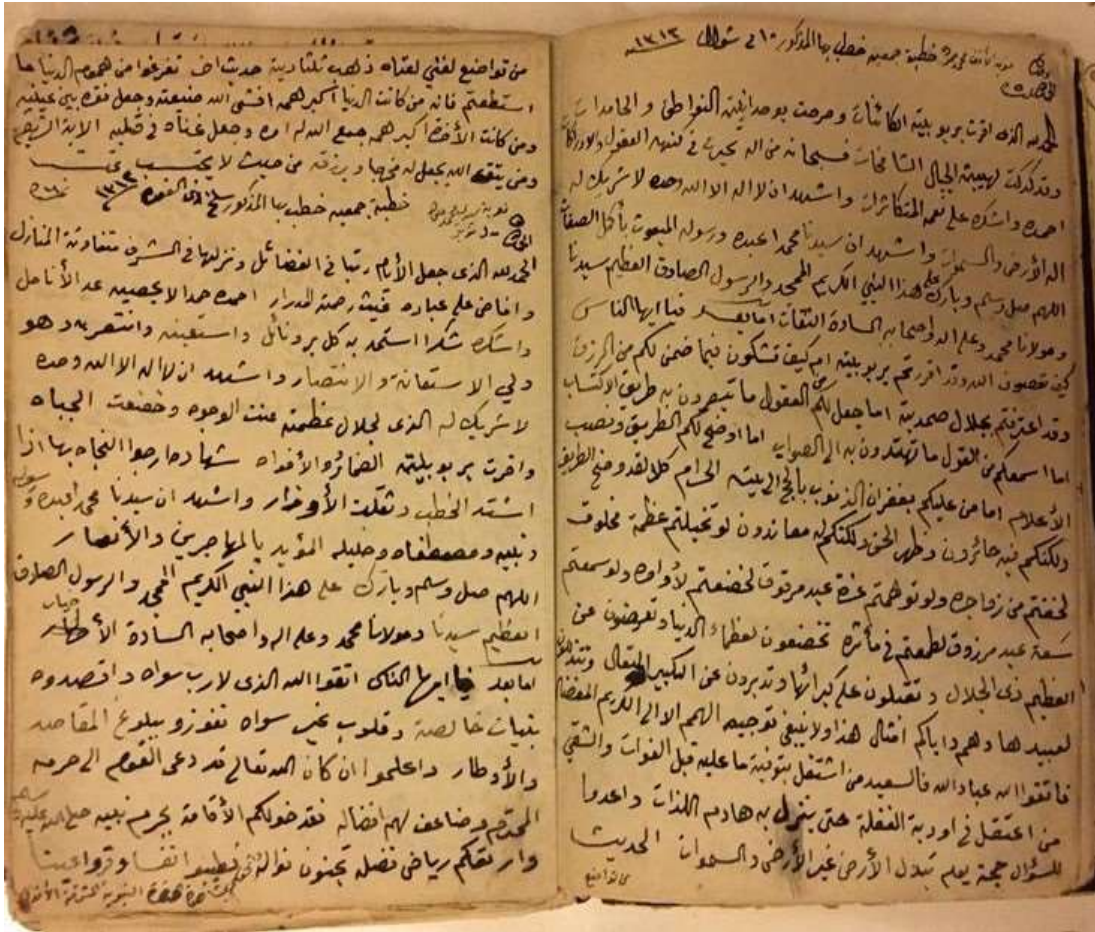 خطبة جمعيه خطب بها المذكور ١٥ شوال ١٣١٣
الحمد لله الذى اقرت بربوبيته الكائنات وصرحت بوحدانيته النواطق والجامدات
وتدكدكت لهيبته الجبال الشامخات فسبحانه من اله تحيرت فى العقول
احمده واشكره على نعمه المتكاثرات واشهد ان لا اله الا الله وحده لا شريك له
اله الارض والسموات واشهد ان سيدنا محمدا عبده ورسوله المبعوث بأكمل الصفات
اللهم صل وسلم وبارك على هذا النبي الكريم الممجد والرسول الصادق العظيم سيدنا
ومولانا محمد وعلى اله واصحابه السادة الثقات اما بعد فيا ايها الناس
كيف تعصون الله وقد اقررتم بربوبيته ام كيف تشكون فيما ضمن لكم من الرزق
وقد اعترفتم بجلال صمديته اما جعل لكم من العقول ما تبصرون به طريق الاكتساب
اما اسمعكم من القول ما تهتدون به الى الصواب اما اوضح لكم الطريق ونصب
الأعلام اما من عليكم بغفران الذنوب بالحج الى بيته الحرام كلا لقد وضح الطريق
ولكنكم فيه حائرون وظهر الحق ولكنكم له معاندون لو تخيلتم عظمة مخلوق
لخفتم من زواجره ولو توهمتم عزة عبد مرقوق لخضعتم لأوامره ولو سمعتم
سعة عبد مرزوق لطمعتم فى مآثره تخضعون لعظماء الدنيا وتعرضون عن
العظيم ذى الجلال وتقبلون على كبرائها وتدبرون عن الكبير المتعال وتتذللون
لعبيدها وهم واياكم امثال هذا ولا ينبغى توجيه الهمم الا الى الكريم المفضال
فاتقوا الله عباد الله فالسعيد من اشتغل بتوبته ما عليه قبل الفوات والشقي
من اعتقل فى اودية الغفلة حتى ينزل به هادم اللذات واعدوا
للسؤال حجة يوم تبدل الأرض غير الأرض والسموات الحديث
من تواضع
من تواضع لغني لغناه ذهب ثلثا دينه حديث اخر تفرغوا من هموم الدنيا ما
استطعتم فانه من كانت الدنيا اكبر همه افشى الله ضيعته وجعل فقره بين عينيه
ومن كانت الأخرة اكبر همه جمع الله له امره وجعل غناه فى قلبه الاية الشريفه
ومن يتق الله يجعل له مخرجا ويرزقه من حيث لا يحتسب
خطبة جمعيه خطب بها المذكور ذى القعده ١٣١٣
الحمد لله الذى جعل الأيام رتبا فى الفضائل ونزلها فى الشرف متفاوتة المنازل
وافاض على عباده غيث رحمته المدرار احمده حمدا لا يحصيه عد الأنامل
واشكره شكرا استمد به كل بر ونائل واستعينه وانتصر به وهو
ولي الاستعانة والانتصار واشهد ان لا اله الا الله وحده
لا شريك له الذى لجلال عظمته عنت الوجوه وخضعت الجباه
واقرت بربوبيته الضمائر والأفواه شهادة ارجوا النجاه بها اذا
اشتد الخطب وثقلت الأوزار واشهد ان سيدنا محمدا عبده ورسوله
ونبيه ومصطفاه وخليله المؤيد بالمهاجرين والأنصار
اللهم صل وسلم وبارك على هذا النبي الكريم الممجد والرسول الصادق
العظيم سيدنا ومولانا محمد وعلى اله واصحابه السادة الأطهار
اما بعد فيا ايها الناس اتقوا الله الذى لا رب سواه واقصدوه
بنيات خالصة وقلوب غير سواه تفوزو ببلوغ المقاصد
والأوطار واعلموا ان كان الله تعالى قد دعى القوم الى حرمه
المحترم وضاعف لهم افضاله فقد خولكم الأقامة بحرم نبيه صلى الله عليه وسلم
وارتعكم رياض فضله تجنون نواله فطيبوا انفسا وقروا عينا